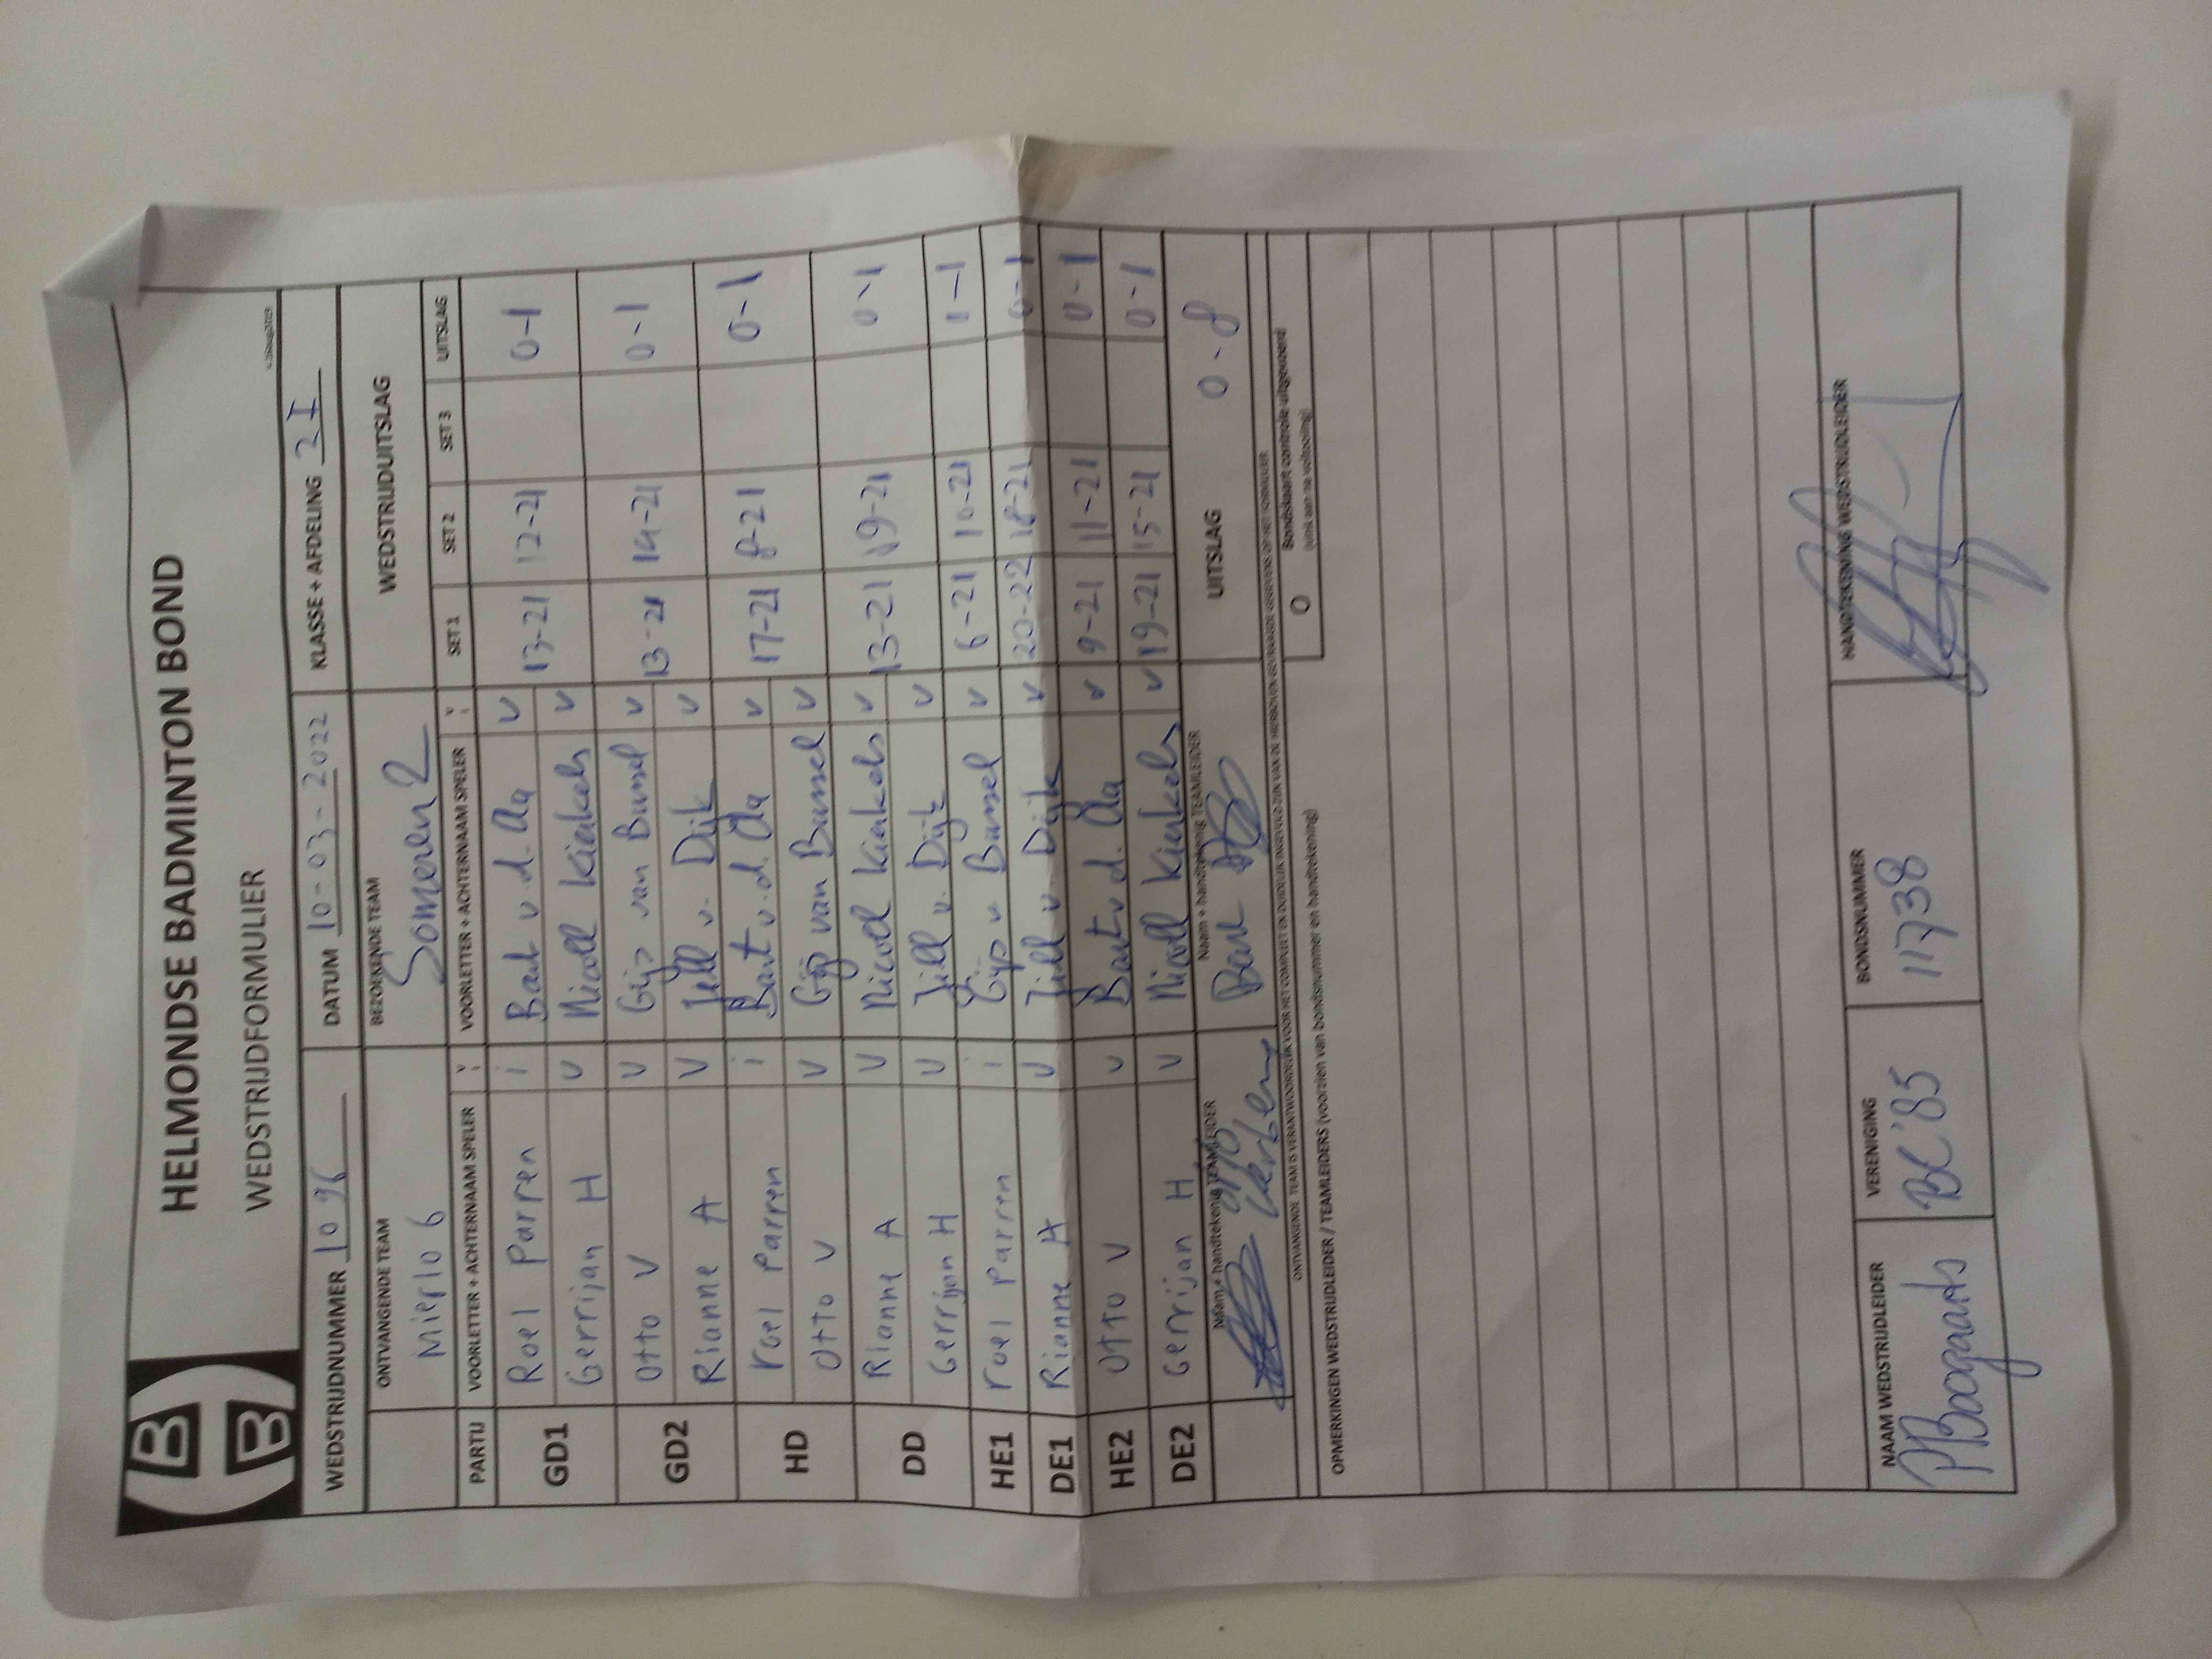 B
B
HELMONDSE BADMINTON BOND
WEDSTRIJDFORMULIER
WEDSTRIJDNUMMER 1096 DATUM 10-03-2022 KLASSE + AFDELING 2I
ONTVANGENDE TEAM BEZOEKENDE TEAM WEDSTRIJDUITSLAG
Mierlo 6 Someren 2
PARTIJ VOORLETTER + ACHTERNAAM SPELER VOORLETTER + ACHTERNAAM SPELER SET 1 SET 2 SET 3 UITSLAG
GD1 Roel Parren i Bart v.d. Aa v 13-21 12-21 0-1
Gerrijan H v Nicoll Kierkels v
GD2 Otto V v Gijs van Bussel v 13-21 14-21 0-1
Rianne A v Jill v. Dijk v
HD roel Parren i Bart v.d. Aa v 17-21 8-21 0-1
Otto V v Gijs van Bussel v
DD Rianne A v Nicoll Kierkels v 13-21 19-21 0-1
Gerrijan H v Jill v. Dijk v
HE1 roel Parren i Gijs v Bussel v 6-21 10-21 1-1
DE1 Rianne A v Jill v. Dijk v 20-22 18-21 0-1
HE2 Otto V v Bart v.d. Aa v 9-21 11-21 0-1
DE2 Gerrijan H v Nicoll Kierkels v 19-21 15-21 0-1
Naam + handtekening TEAMLEIDER Naam + handtekening TEAMLEIDER UITSLAG 0-8
Otto
ONTVANGENDE TEAM IS VERANTWOORDELIJK VOOR HET COMPLEET EN DUIDELIJK INGEVULD ZIJN VAN DE HIERBOVEN GEVRAAGDE GEGEVENS OP HET FORMULIER
O Bondskaart controle uitgevoerd
(vink aan na voltooiing)
OPMERKINGEN WEDSTRIJDLEIDER / TEAMLEIDERS (voorzien van bondsnummer en handtekening)
NAAM WEDSTRIJDLEIDER VERENIGING BONDSNUMMER HANDTEKENING WEDSTRIJDLEIDER
P Boogaarts BC'85 11738